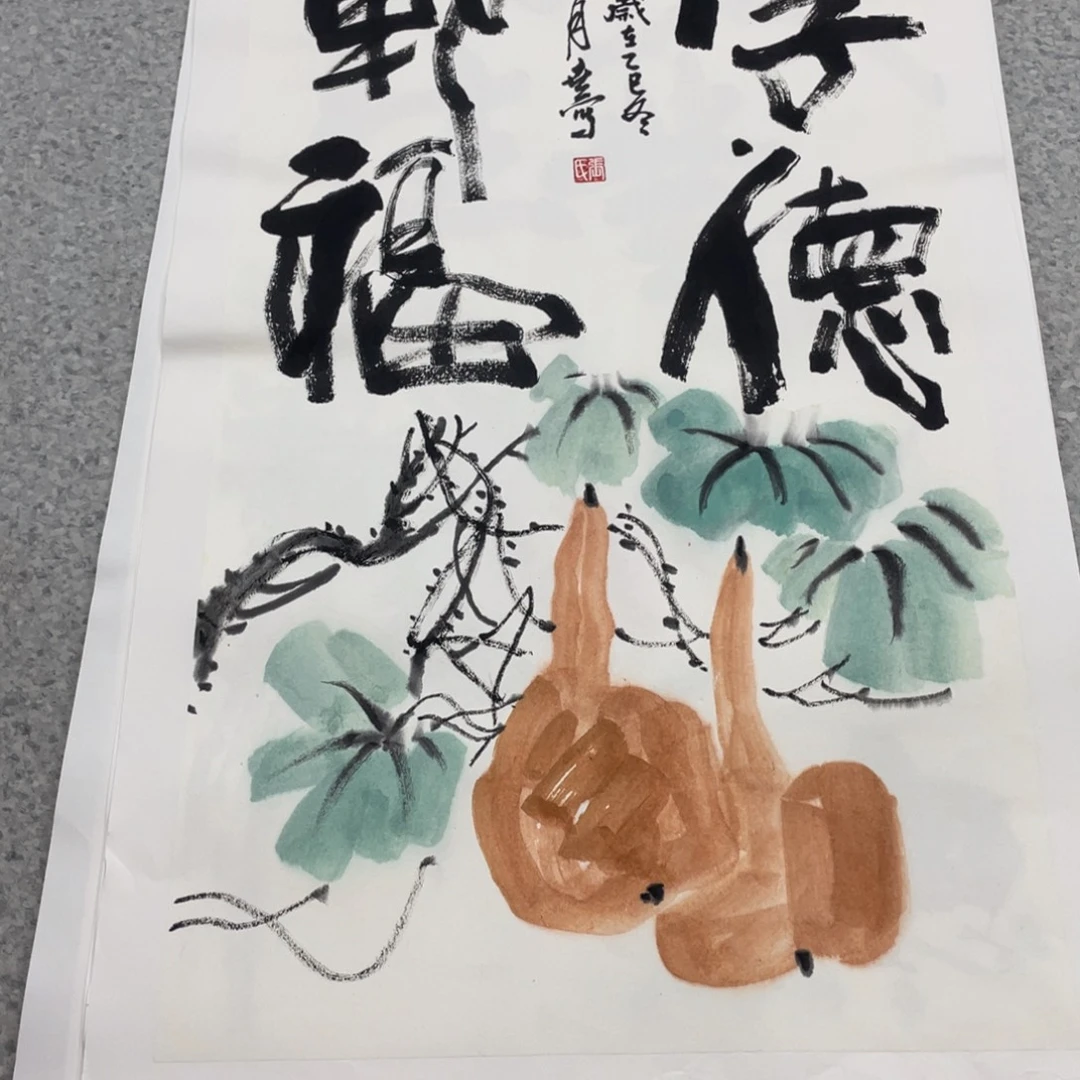 厚德
載福
歲在乙巳冬
月 寫
張氏